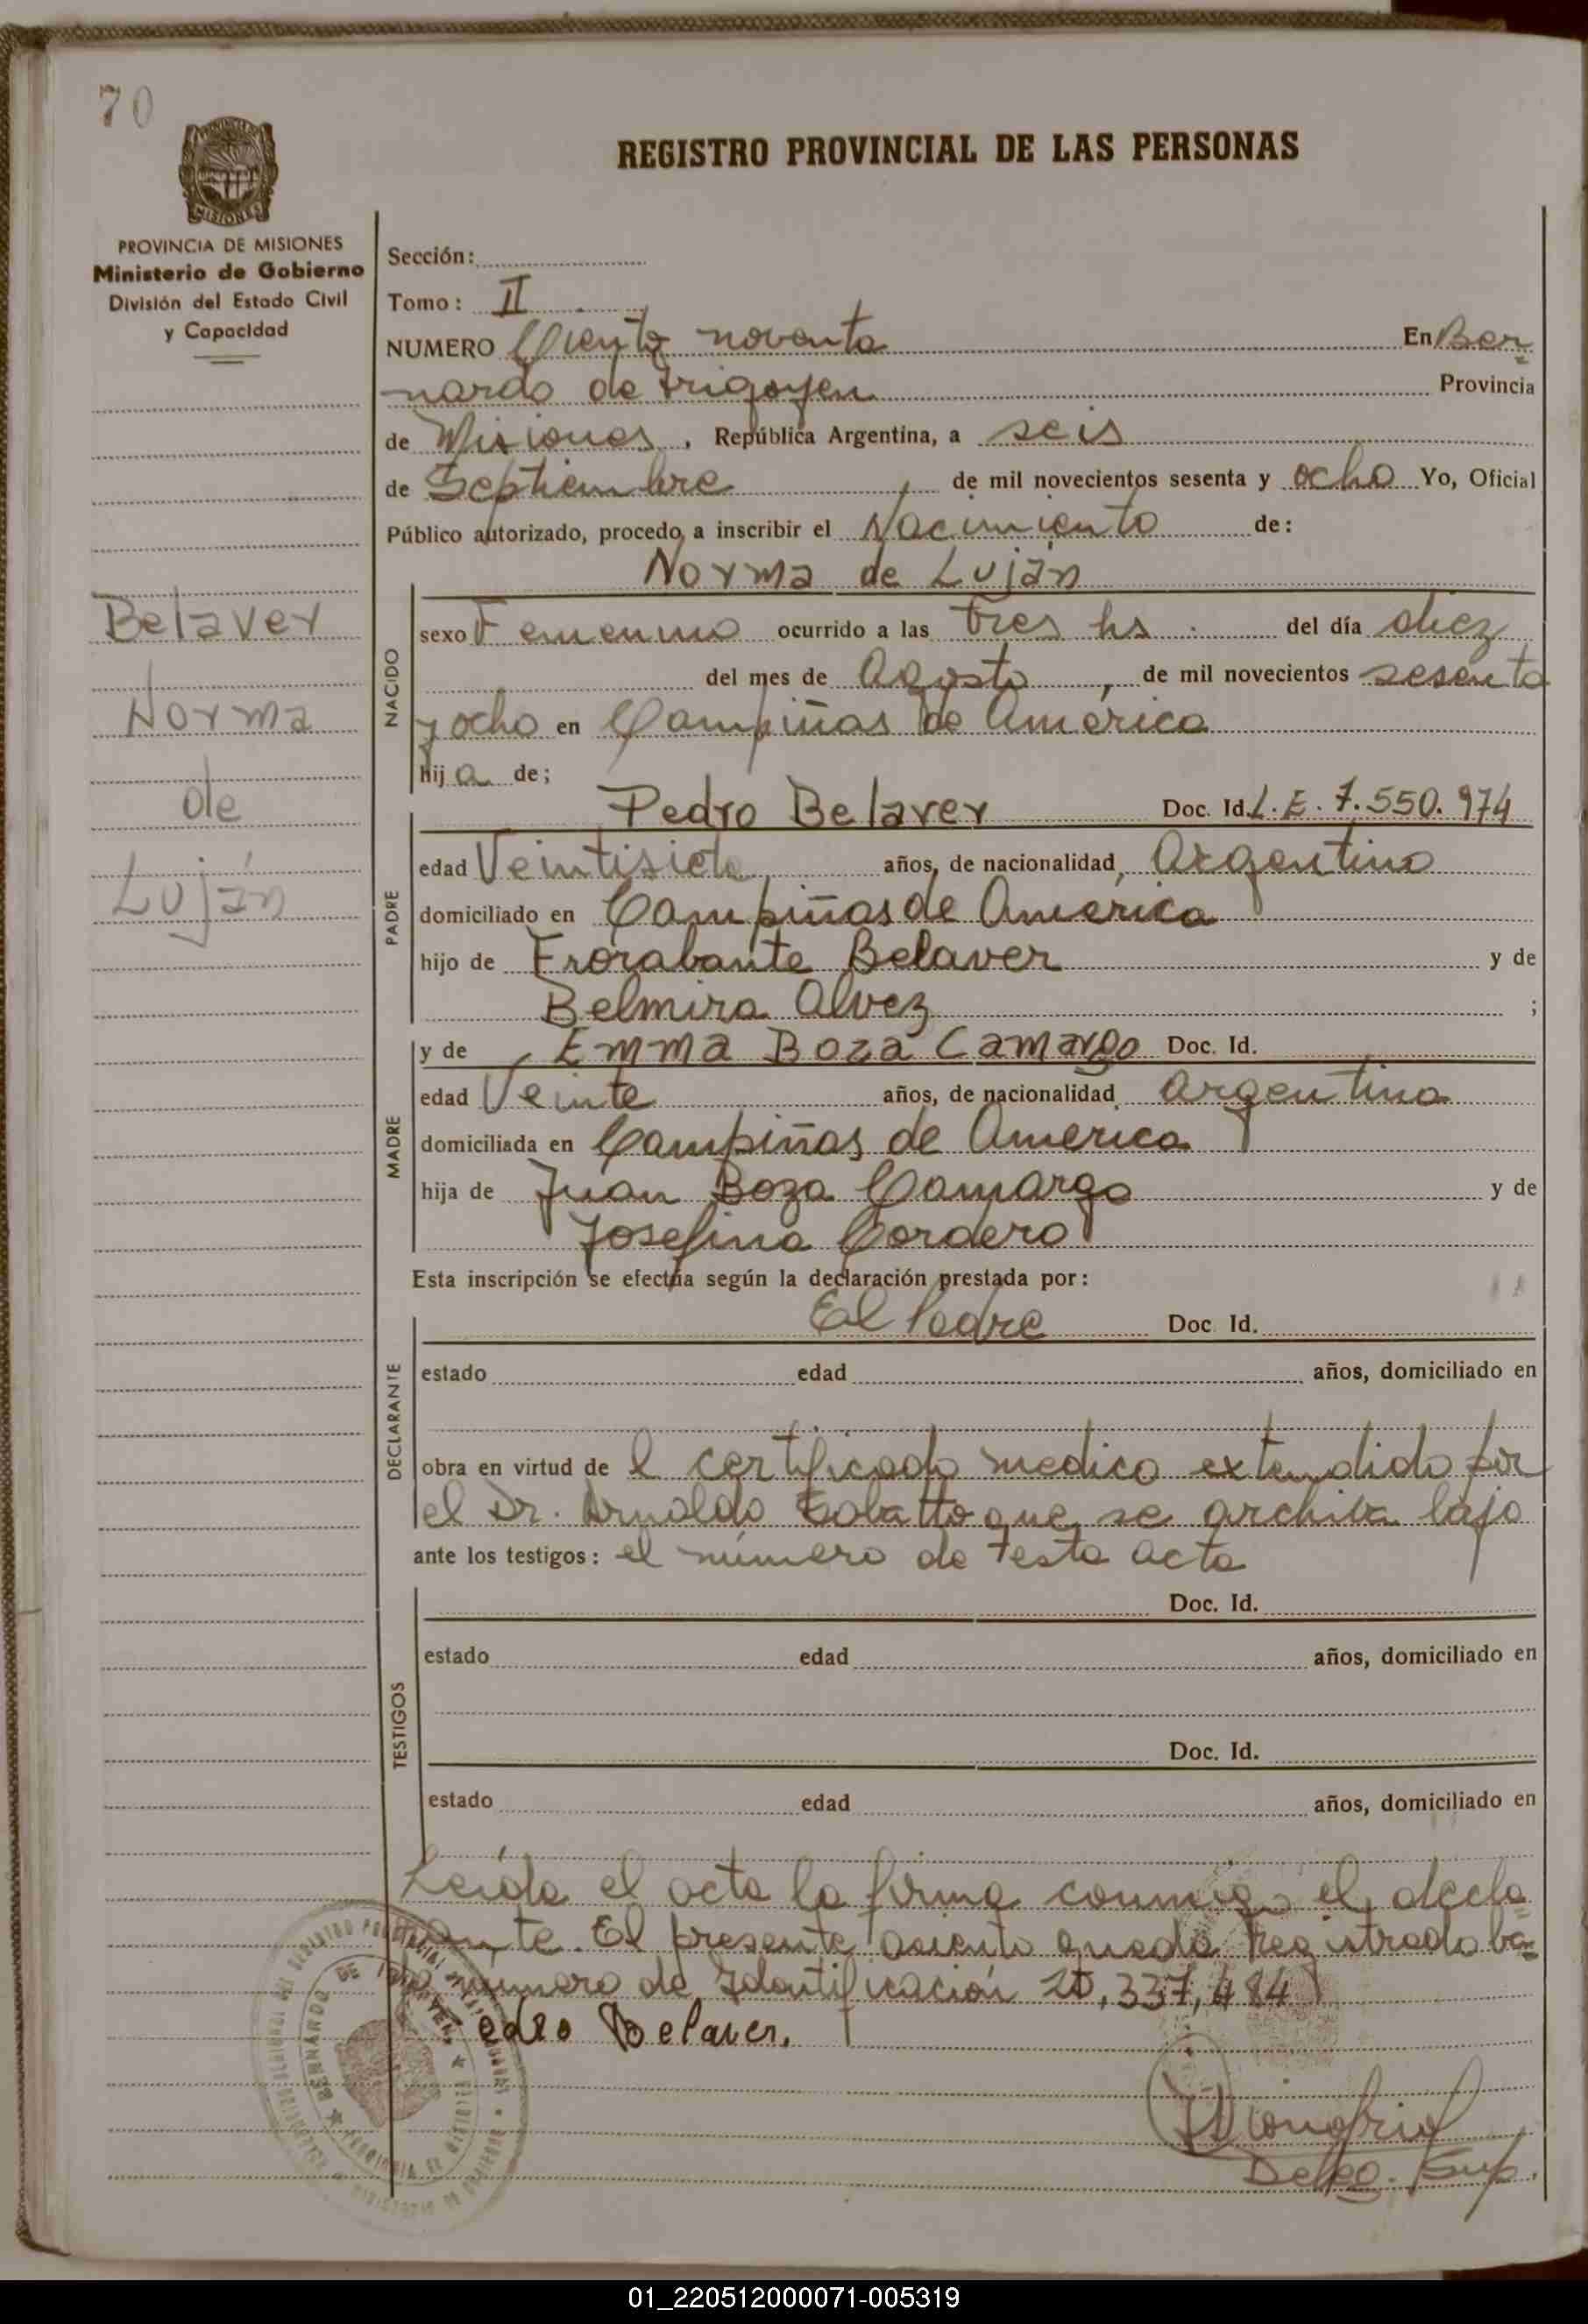 70
PROVINCIA DE MISIONES
Ministerio de Gobierno
División del Estado Civil
y Capacidad
REGISTRO PROVINCIAL DE LAS PERSONAS
Sección:
Tomo: II
NUMERO Ciento noventa En Ber=
nardo de Irigoyen Provincia
de Misiones, República Argentina, a seis
de Septiembre, de mil novecientos sesenta y ocho Yo, Oficial
Público autorizado, procedo a inscribir el Nacimiento de:
Norma de Luján
Belaver
Norma
de
Luján
NACIDO
sexo Femenino ocurrido a las tres hs. del día diez
del mes de Agosto, de mil novecientos sesenta
y ocho en Campiñas de América
hija de;
PADRE
Pedro Belaver Doc. Id. L.E. 7.550.974
edad Veintisiete años, de nacionalidad Argentino
domiciliado en Campiñas de America
hijo de Frorabante Belaver y de
Belmira Alvez ;
MADRE
y de Emma Boza Camargo Doc. Id.
edad Veinte años, de nacionalidad Argentina
domiciliada en Campiñas de America
hija de Juan Boza Camargo y de
Josefina Cordero
Esta inscripción se efectúa según la declaración prestada por:
DECLARANTE
El Padre Doc. Id.
estado edad años, domiciliado en
obra en virtud de l certificado medico extendido por
el Dr. Arnoldo que se archiva bajo
ante los testigos: el número de esta acta
TESTIGOS
Doc. Id.
estado edad años, domiciliado en
Doc. Id.
estado edad años, domiciliado en
Leída el acta la firma conmigo el decla=
rante. El presente asiento queda registrado ba=
jo número de Identificación 20,337,484
Pedro Belaver.
Deleg. Sup.
01_220512000071-005319